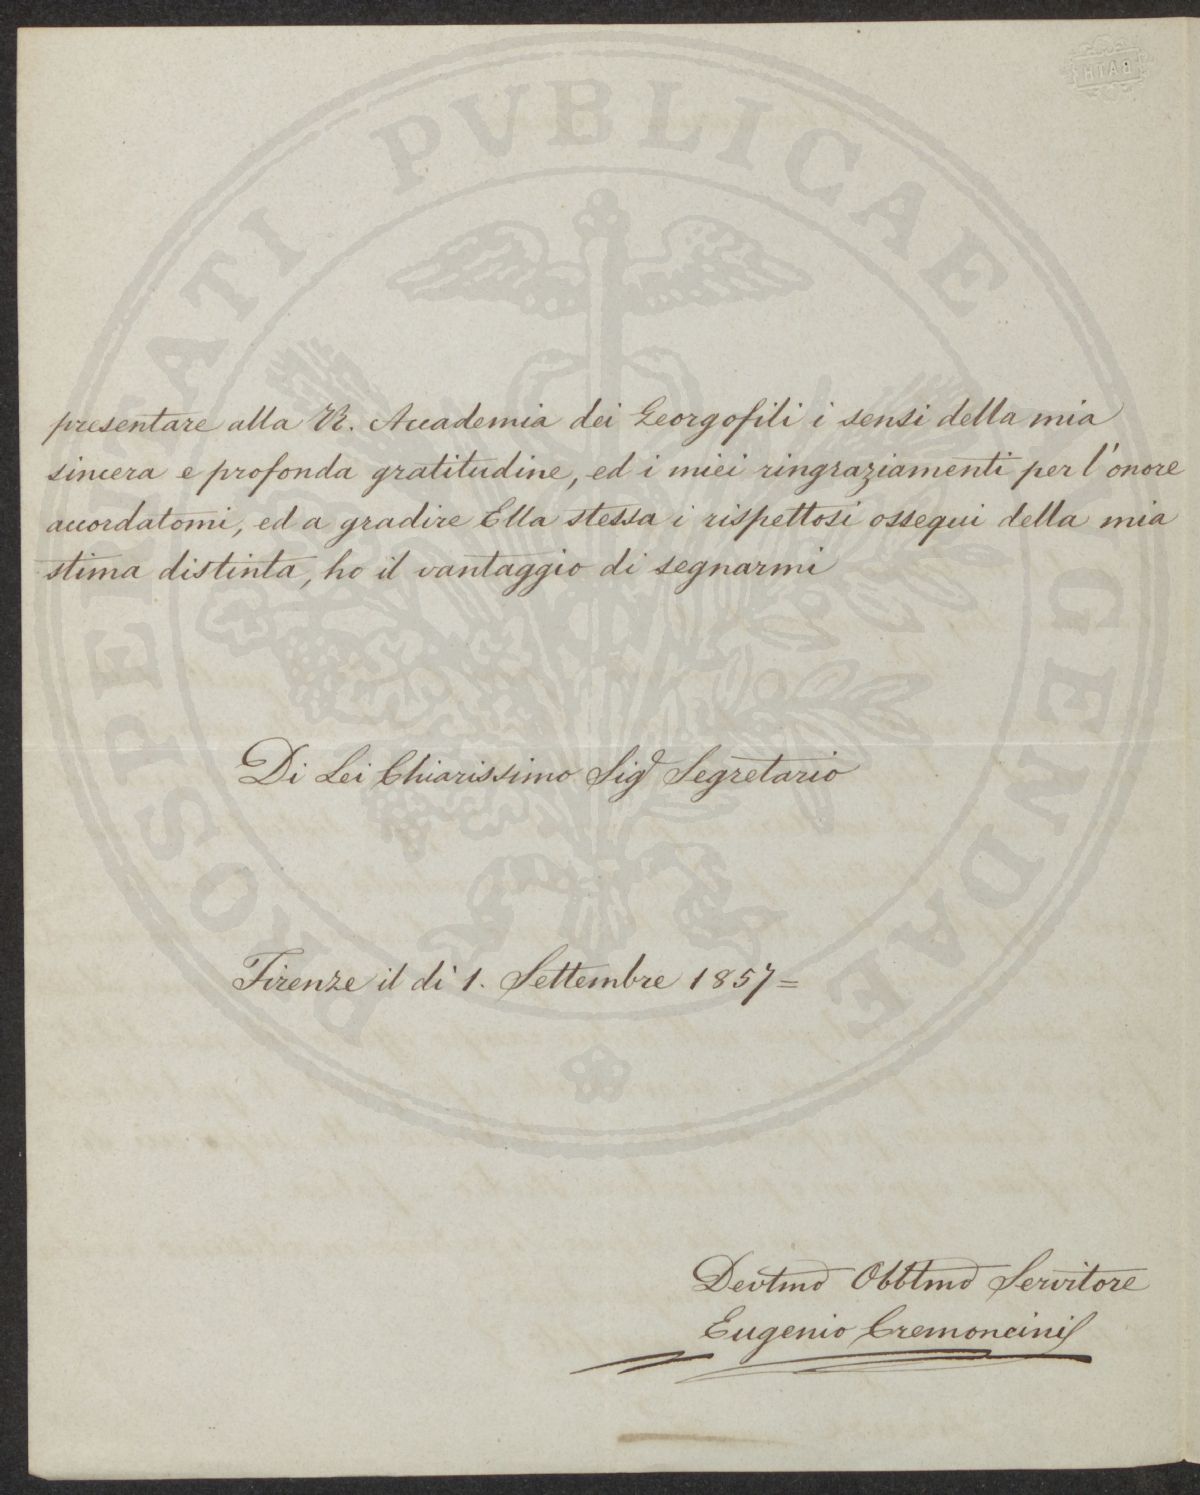 PROSPERITATI PVBLICAE AVGENDAE
BATH
presentare alla R. Accademia dei Georgofili i sensi della mia
sincera e profonda gratitudine, ed i miei ringraziamenti per l'onore
accordatomi, ed a gradire Ella stessa i rispettosi ossequi della mia
stima distinta, ho il vantaggio di segnarmi
Di Lei Chiarissimo Sigr Segretario
Firenze il di' 1. Settembre 1857=
Devtmo Obbtmo Servitore
Eugenio Cremoncini